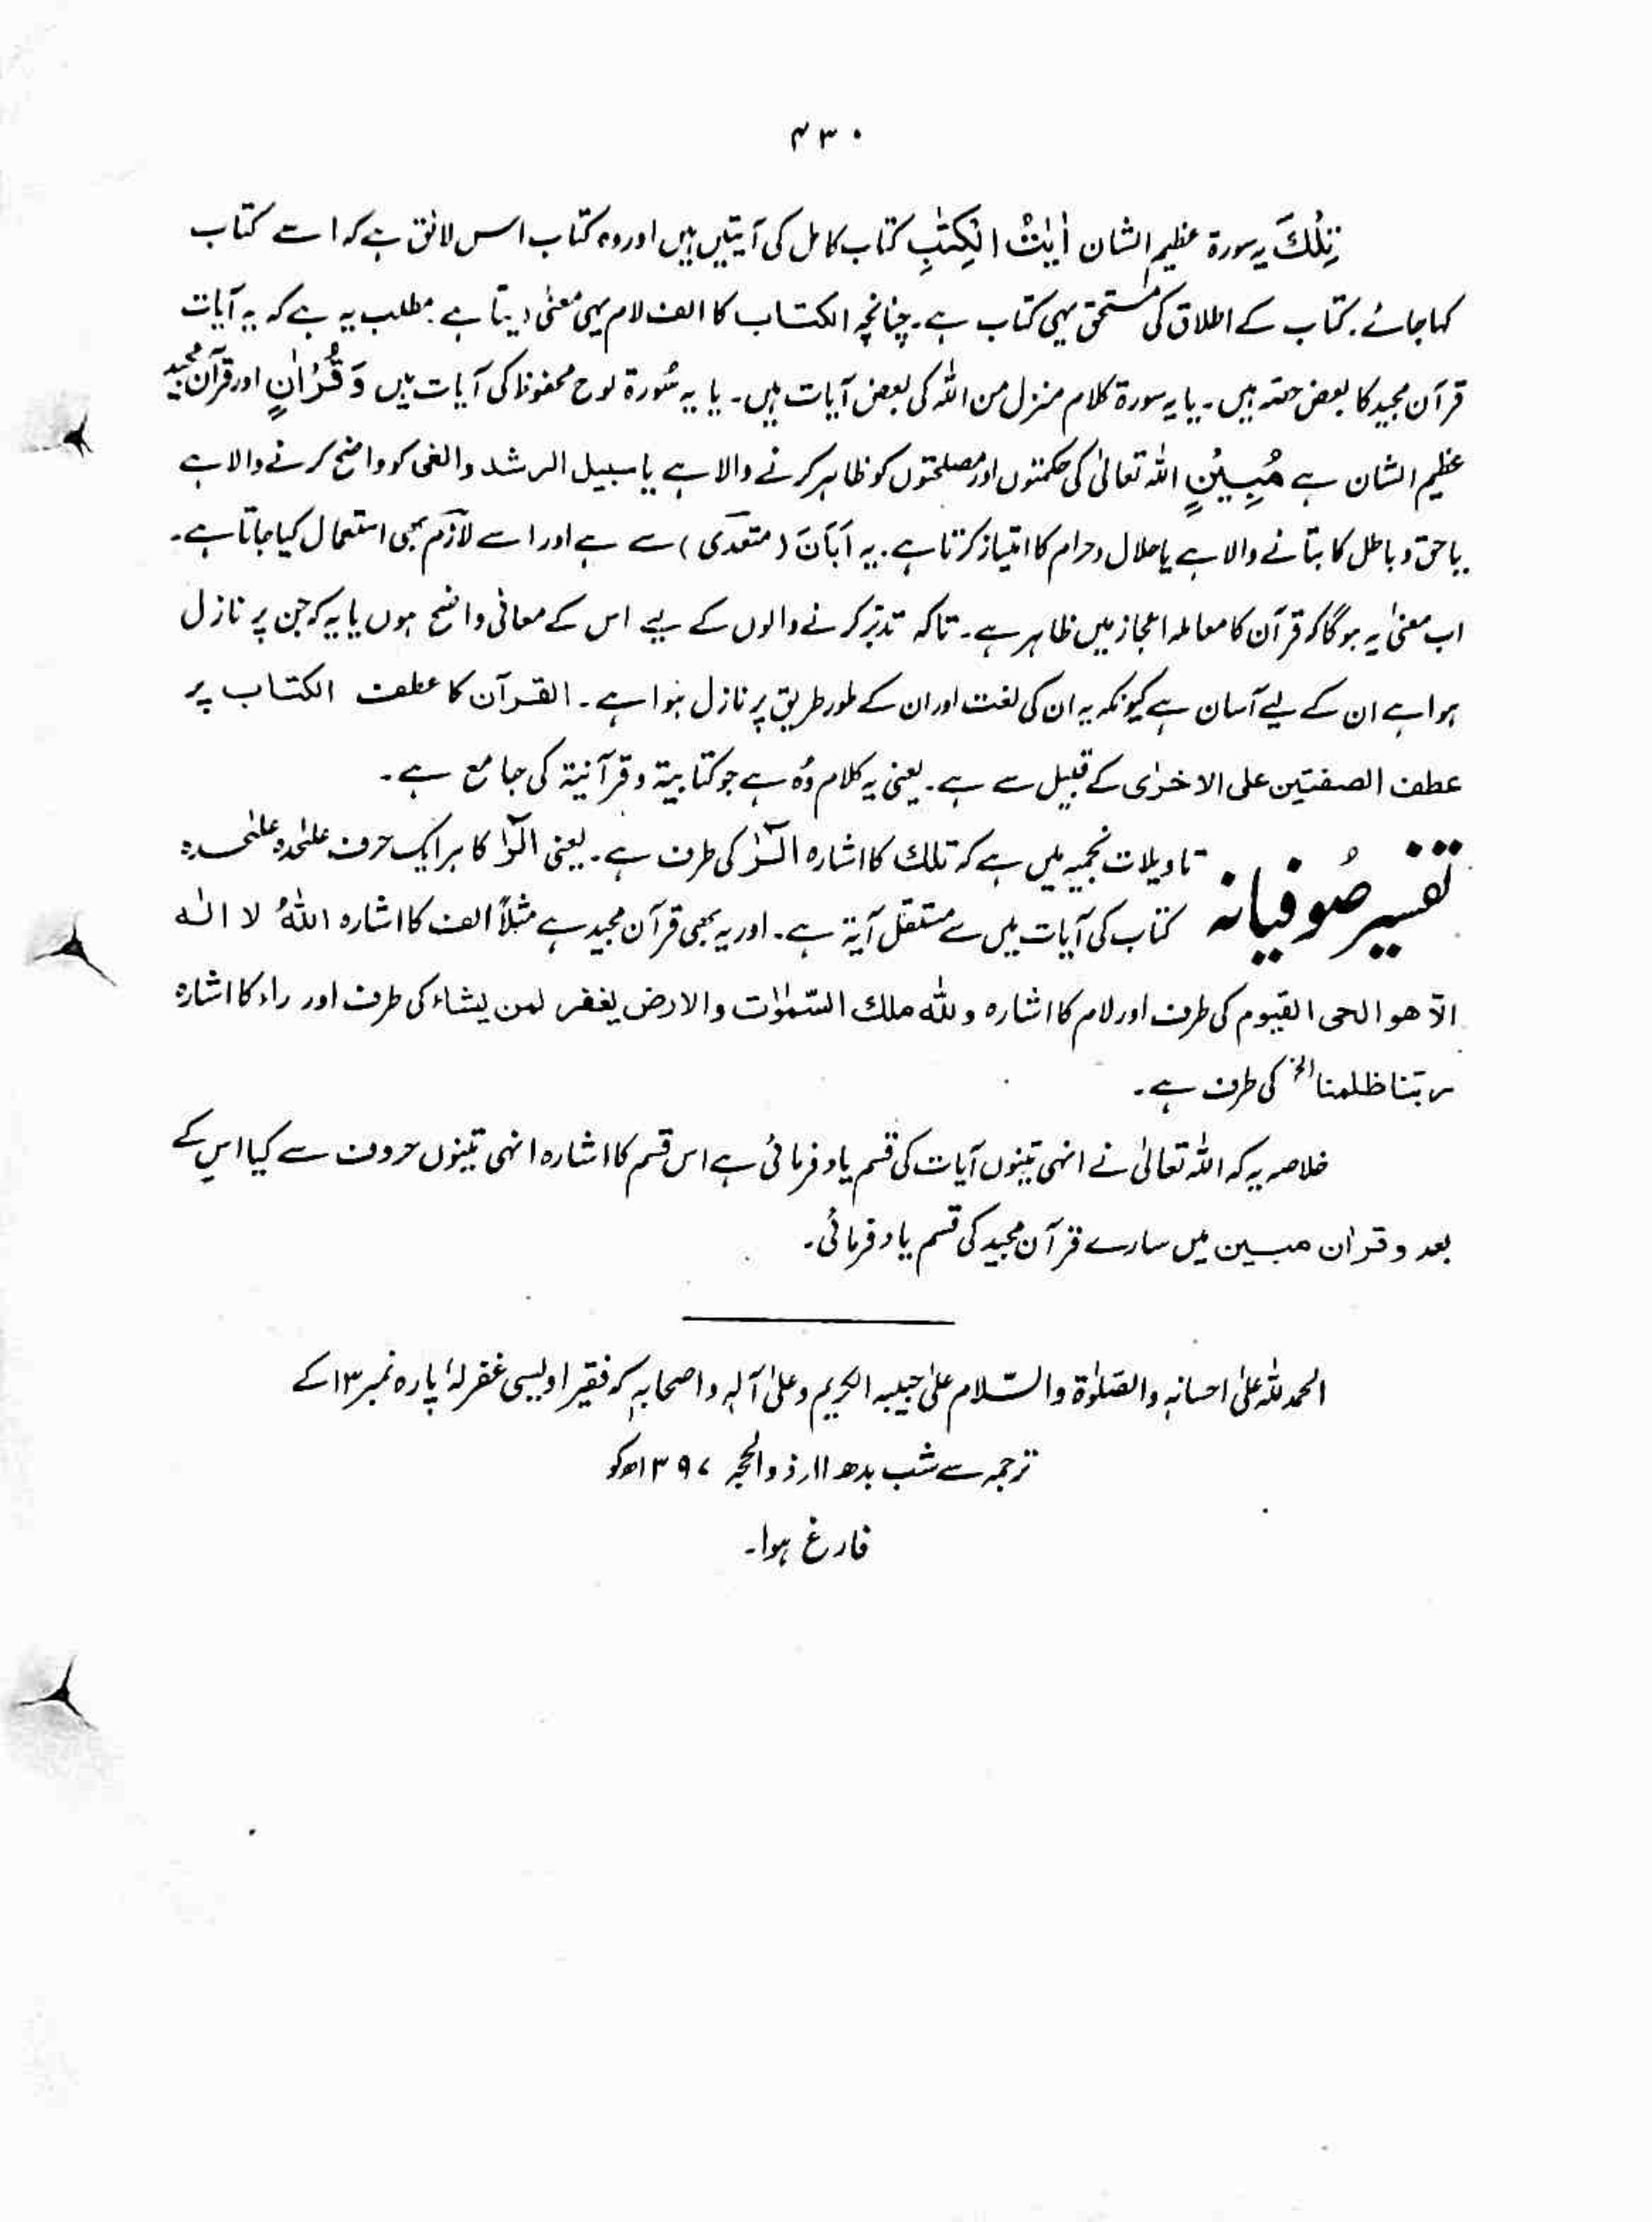 ۴۳۰
تِلْكَ یہ سورۃ عظیم الشان اٰیٰتُ الْکِتٰبِ کتاب کامل کی آیتیں ہیں اور وہ کتاب اس لائق ہے کہ اسے کتاب
کہا جائے۔ کتاب کے اطلاق کی مستحق یہی کتاب ہے۔ چنانچہ الکتاب کا الف لام یہی معنیٰ دیتا ہے۔ مطلب یہ ہے کہ یہ آیات
قرآن مجید کا بعض حصّہ ہیں۔ یا یہ سورۃ کلام منزل من اللہ کی بعض آیات ہیں۔ یا یہ سُورۃ لوح محفوظ کی آیات ہیں وَ قُرْاٰنٍ اور قرآن مجید
عظیم الشان ہے مُبِیْنٍ اللہ تعالیٰ کی حکمتوں اور مصلحتوں کو ظاہر کرنے والا ہے یا سبیل الرشد والغی کو واضح کرنے والا ہے
یا حق و باطل کا بتانے والا ہے یا حلال و حرام کا امتیاز کرتا ہے۔ یہ اَبَانَ (متعدی) سے ہے اور اسے لازم بھی استعمال کیا جاتا ہے۔
اب معنیٰ یہ ہوگا کہ قرآن کا معاملہ اعجاز میں ظاہر ہے۔ تاکہ تدبّر کرنے والوں کے لیے اس کے معانی واضح ہوں یا یہ کہ جن پر نازل
ہوا ہے ان کے لیے آسان ہے کیونکہ یہ ان کی لغت اور ان کے طور طریق پر نازل ہوا ہے۔ القرآن کا عطف الکتاب پر
عطف الصفتین علی الاخرٰی کے قبیل سے ہے۔ یعنی یہ کلام وُہ ہے جو کتابیۃ و قرآنیۃ کی جامع ہے۔
تفسیر صُوفیانہ تاویلات نجمیہ میں ہے کہ تلك کا اشارہ الٓرٰ کی طرف ہے۔ یعنی الٓرٰ کا ہر ایک حرف علیٰحدہ علیٰحدہ
کتاب کی آیات میں سے مستقل آیۃ ہے۔ اور یہ بھی قرآن مجید ہے مثلاً الف کا اشارہ اللہُ لا الٰہ
الّا ھو الحی القیوم کی طرف اور لام کا اشارہ وللہ ملك السّمٰوٰت والارض یغفر لمن یشاء کی طرف اور راء کا اشارہ
ربّنا ظلمنا الخ کی طرف ہے۔
خلاصہ یہ کہ اللہ تعالیٰ نے انہی تینوں آیات کی قسم یاد فرمائی ہے اس قسم کا اشارہ انہی تینوں حروف سے کیا اس کے
بعد وقراٰن مبین میں سارے قرآن مجید کی قسم یاد فرمائی۔
الحمد للہ علیٰ احسانہٖ والصّلوٰۃ والسّلام علیٰ حبیبہ الکریم وعلیٰ آلہٖ واصحابہٖ کہ فقیر اویسی غفرلہٗ پارہ نمبر ۱۳ کے
ترجمہ سے شب بدھ ۱۱ر ذوالحجہ ۱۳۹۷ھ کو
فارغ ہوا۔